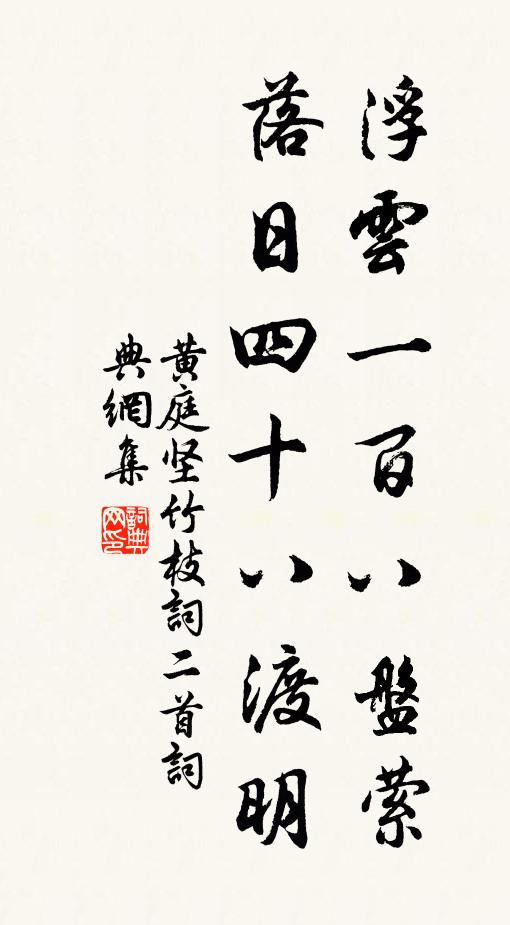 浮雲一百八盤縈
落日四十八渡明
黄庭坚竹枝詞二首詞
典網集
詞典
网印